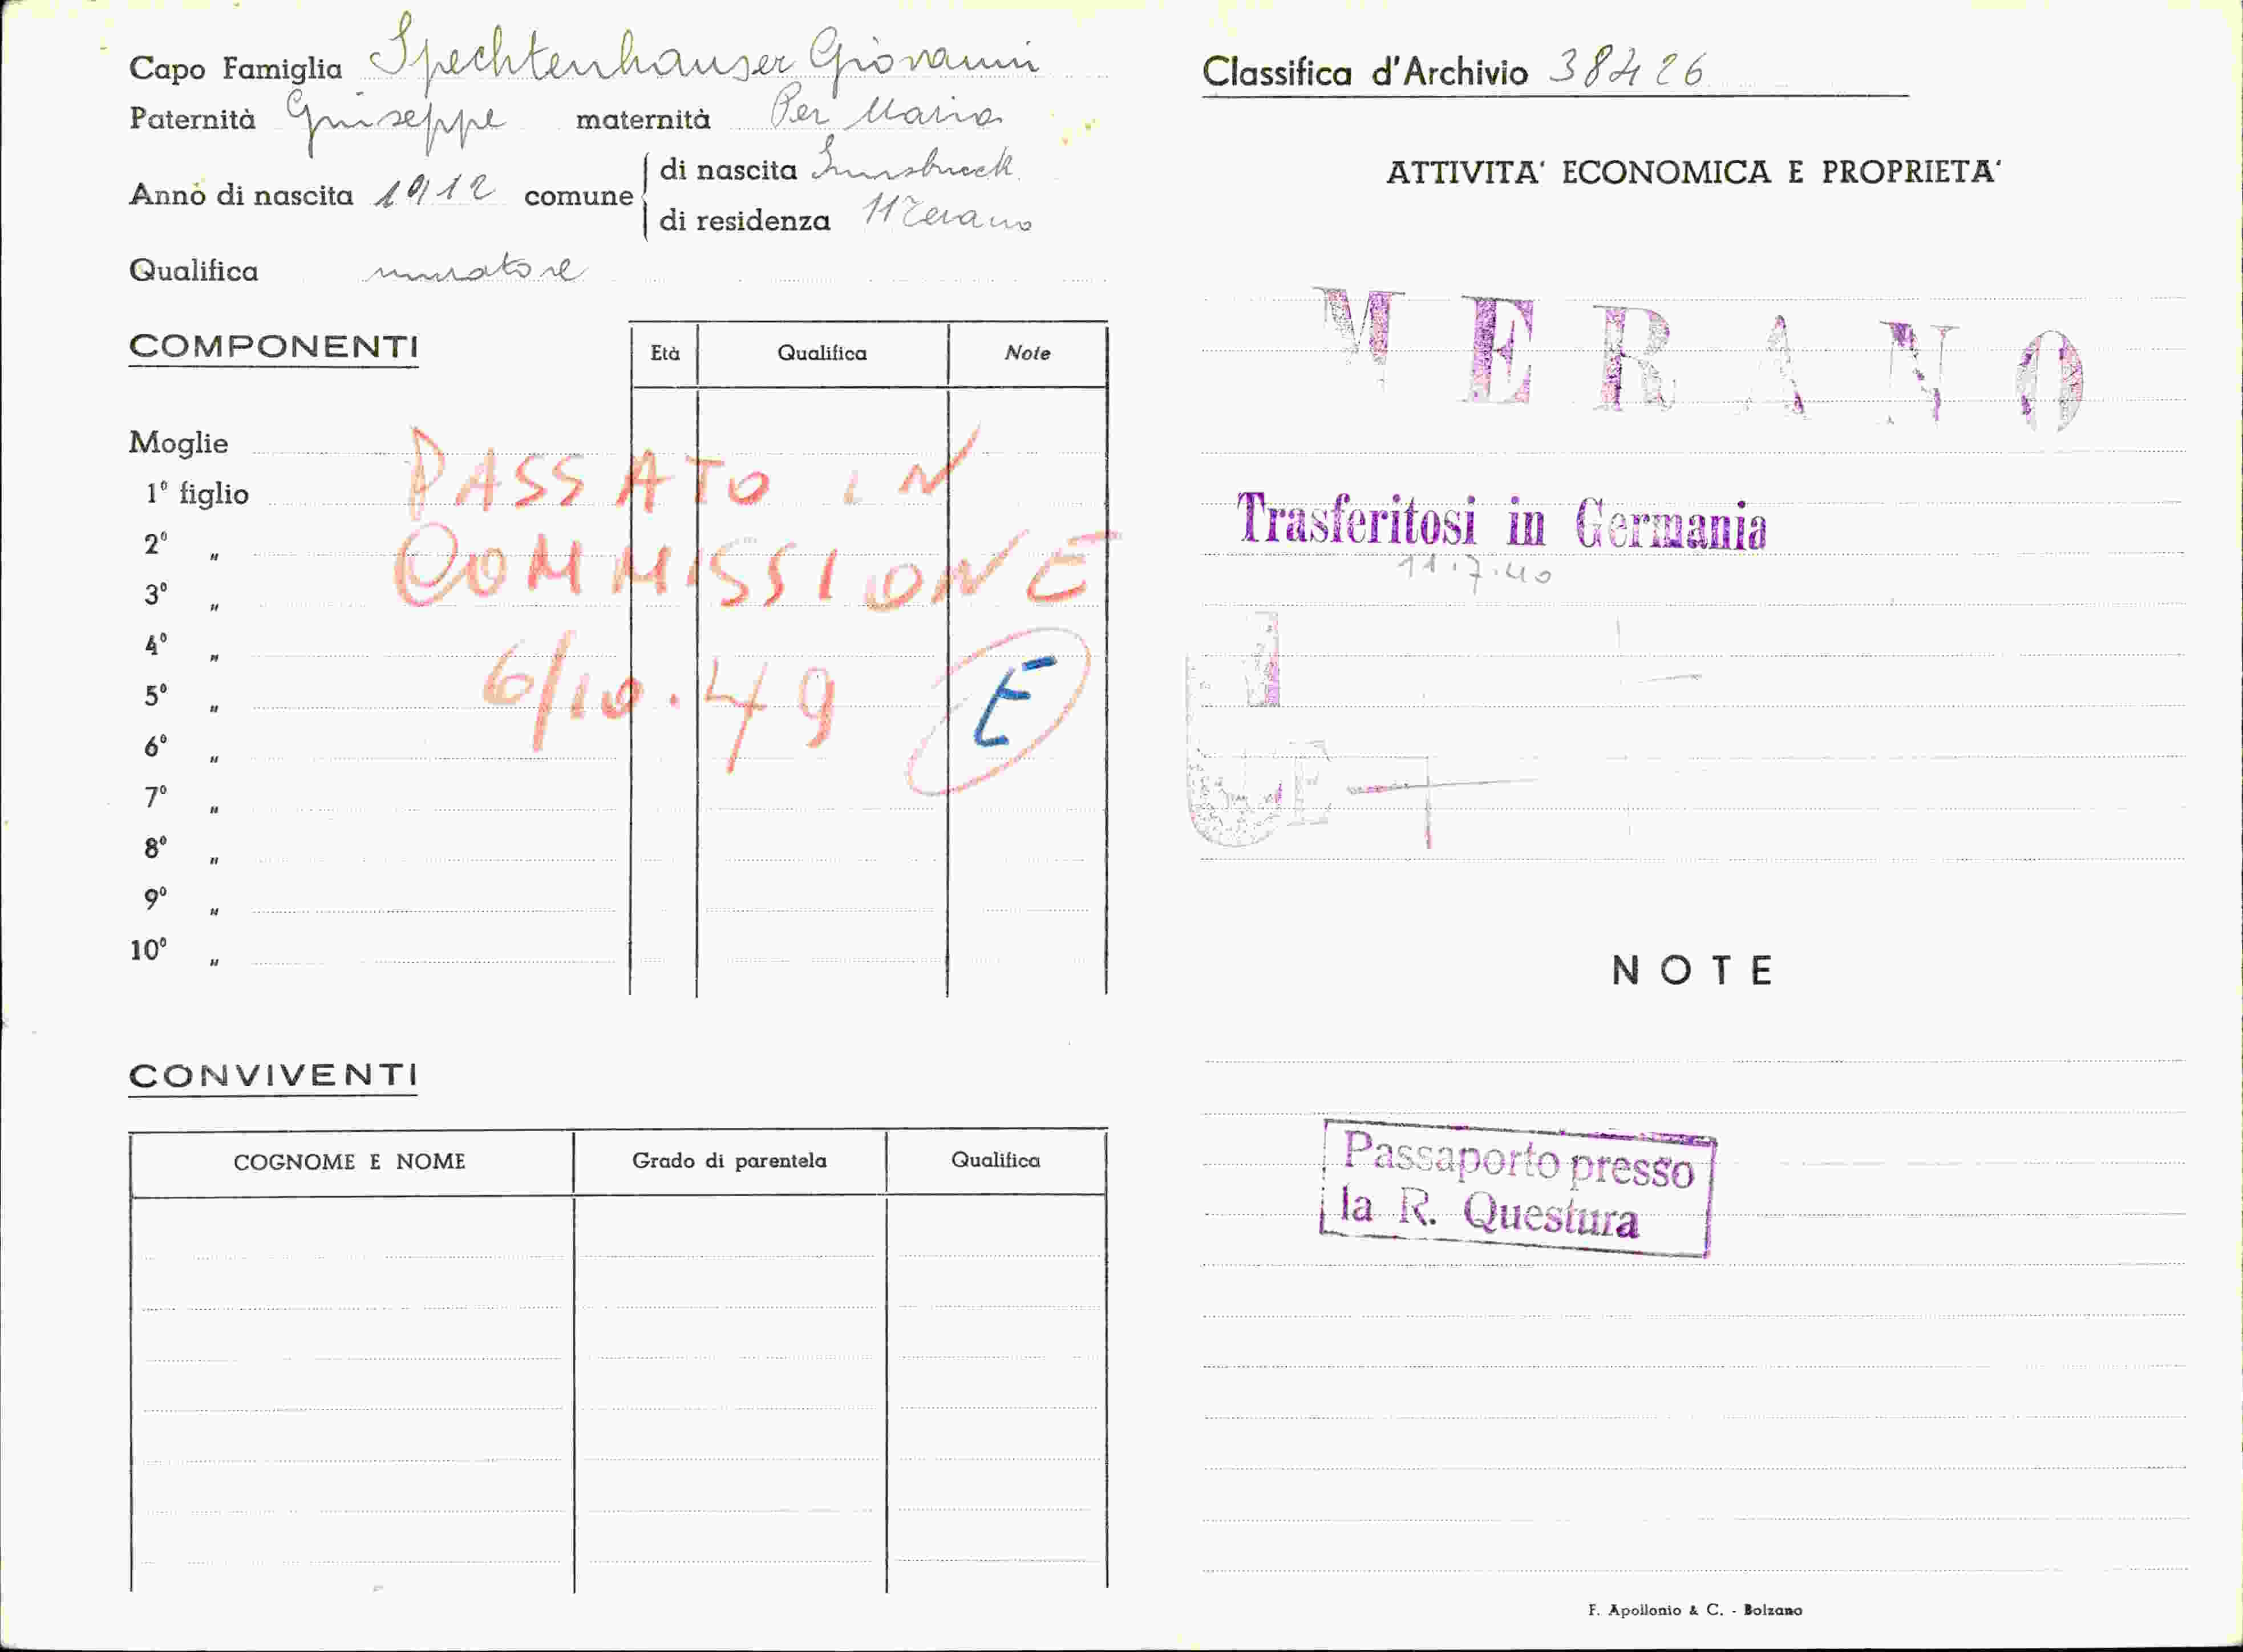 Capo Famiglia Spechtenhauser Giovanni
Paternità Giuseppe maternità Per Maria
Anno di nascita 1912 comune di nascita Innsbruck
di residenza Merano
Qualifica muratore
COMPONENTI
Età Qualifica Note
Moglie
1º figlio
2º "
3º "
4º "
5º "
6º "
7º "
8º "
9º "
10º "
PASSATO IN
COMMISSIONE
6/10.49 E
CONVIVENTI
COGNOME E NOME Grado di parentela Qualifica
Classifica d'Archivio 38426
ATTIVITA' ECONOMICA E PROPRIETA'
MERANO
Trasferitosi in Germania
11.7.40
NOTE
Passaporto presso
la R. Questura
F. Apollonio & C. - Bolzano